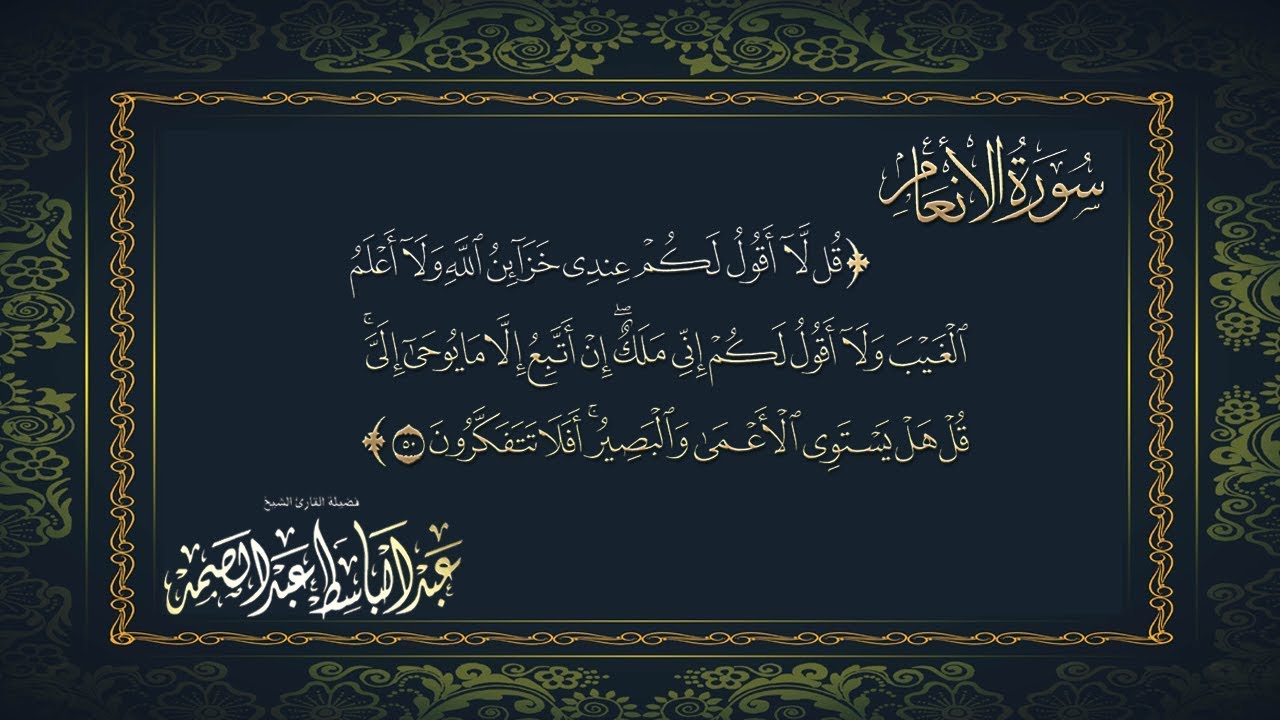 سُورَةُ الأَنْعَامِ
﴿قُل لَّآ أَقُولُ لَكُمْ عِندِى خَزَآئِنُ ٱللَّهِ وَلَآ أَعْلَمُ
ٱلْغَيْبَ وَلَآ أَقُولُ لَكُمْ إِنِّى مَلَكٌۖ إِنْ أَتَّبِعُ إِلَّا مَا يُوحَىٰٓ إِلَىَّۚ
قُلْ هَلْ يَسْتَوِى ٱلْأَعْمَىٰ وَٱلْبَصِيرُۚ أَفَلَا تَتَفَكَّرُونَ ٥٠﴾
فضيلة القارئ الشيخ
عبد الباسط عبد الصمد